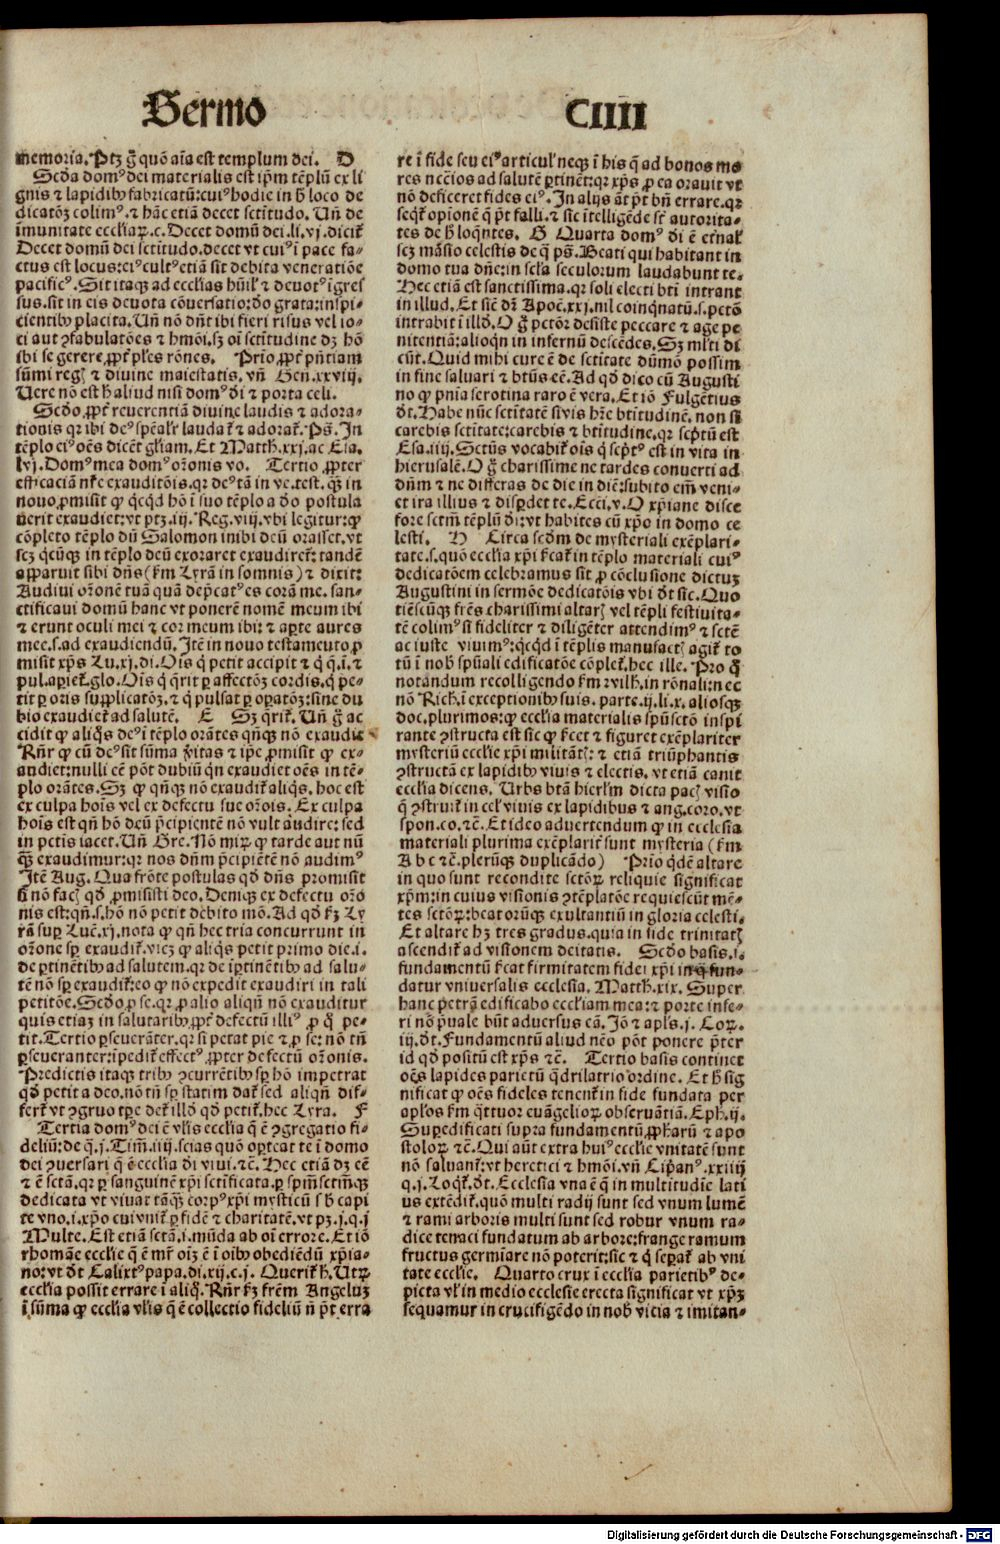 Sermo CIIII
memoria. Ptʒ g̃ quō aīa est templum dei. D
Scđa domꝰ dei materialis est ip̄m tēplū ex li
gnis ⁊ lapidibꝰ fabricatū: cuiꝰ hodie in h̄ loco de
dicatōʒ colimꝰ. ⁊ hāc etiā decet sctitudo. Un̄ de
īmunitate eccƚiaꝝ. c. Decet domū dei. li. vj. dicit̄
Decet domū dei sctitudo. decet vt cuiꝰ ī pace fa⸗
ctus est locus: eiꝰ cultꝰ etiā sit debita veneratiōe
pacificꝰ. Sit itaqʒ ad eccƚias hūil̄ ⁊ deuotꝰ īgres
sus. sit in eis deuota cōuersatio: đo grata: inspi⸗
cientibꝰ placita. Un̄ nō dn̄t ibi fieri risus vel io⸗
ci aut ꝯfabulatōes ⁊ hmōi. sʒ oī sctitudine dʒ hō
ibi se gerere, ꝓpt̄ ꝑles rōnes. Prīo, ꝓpt̄ pn̄tiam
sūmi regꝭ ⁊ diuine maiestatis. vn̄ Gen̄. xxviij.
Uere nō est h̄ aliud nisi domꝰ đi ⁊ porta celi.
Scđo, ꝓpt̄ reuerentiā diuine laudis ⁊ adora⸗
tionis qr ibi deꝰ spēalr̄ laudat̄ ⁊ adorat̄. Pš. In
tēplo eiꝰ oēs dicēt gƚiam. Et Matth. xxj. ac Eſa.
lvj. Domꝰ mea domꝰ or̄onis vo. Tertio ꝓpter
efficaciā nr̄e exauditōis. qr deꝰ tā in ve. test. q̄ʒ in
nouo, ꝓmisit ꝙ qcqd hō ī suo tēplo a đo postula
uerit exaudiet: vt ptʒ. iij. Reg. viij. vbi legitur: ꝙ
cōpleto tēplo dū Salomon inibi deū orasset. vt
scʒ qcūqʒ in tēplo deū exoraret exaudiret̄: tandē
apparuit sibi dn̄s (ẜm Lyrā in somnis) ⁊ dixit:
Audiui or̄onē tuā quā dep̄catꝰ es corā me. san⸗
ctificaui domū hanc vt ponerē nomē meum ibi
⁊ erunt oculi mei ⁊ cor meum ibi: ⁊ aꝑte aures
mee. s. ad exaudiendū. Itē in nouo testamento ꝓ
misit xp̄s Lu. xj. di. Ois q̄ petit accipit ⁊ q̄ q̄. ī. ⁊
pul. aꝑiet̄. glo. Ois q̄ q̄rit ꝑ affectōʒ cordis. q̄ pe⸗
tit ꝑ oris supplicatōʒ. ⁊ q̄ pulsat ꝑ oꝑatōʒ: sine du
bio exaudiet̄ ad salutē. E Sʒ q̄rit̄. Un̄ g̃ ac
cidit ꝙ aliq̄s deꝰ ī tēplo orātes qn̄qʒ nō exaudit
Rn̄r ꝙ cū deꝰ sit sūma v̄itas ⁊ ip̄e ꝓmisit ꝙ ex⸗
audiet: nulli eē pōt dubiū qn exaudiet oēs in tē⸗
plo orātes. Sʒ ꝙ qn̄qʒ nō exaudit̄ aliqs. hoc est
ex culpa hoīs vel ex defectu sue or̄ois. Ex culpa
hoīs est qn̄ hō deū p̄cipientē nō vult audire: sed
in petis iacet. Un̄ Gre. Nō miꝝ ꝙ tarde aut nū
q̄ʒ exaudimur: qr nos dn̄m p̄cipiētē nō audimꝰ
Itē Aug. Qua frōte postulas qđ dn̄s promisit
si nō facꝭ qđ ꝓmisisti deo. Deniqʒ ex defectu or̄o
nis est: qn̄. s. hō nō petit debito mō. Ad qđ ẜʒ Ly
rā suꝑ Luē. xj. nota ꝙ qn̄ hec tria concurrunt in
or̄one sꝑ exaudit̄. vicʒ ꝙ aliqs petit primo die. i.
de ꝑtinētibꝰ ad salutem. qr de īꝑtinētibꝰ ad salu⸗
tē nō sꝑ exaudit̄: eo ꝙ nō expedit exaudiri in tali
petitōe. Scđo ꝓ se. qr ꝓ alio aliqn̄ nō exauditur
quis etiaʒ in salutaribꝰ, ꝓpt̄ defectū illiꝰ ꝓ q̄ pe⸗
tit. Tertio ꝑseuerāter. qr si petat pie ⁊ ꝓ se: nō tn̄
ꝑseueranter: īpedit̄ effectꝰ, ꝓpter defectū or̄onis.
Predictis itaqʒ tribꝰ ꝯcurrētibꝰ sꝑ hō impetrat
qđ petit a deo. nō tn̄ sꝑ statim dat̄ sed aliqn̄ dif⸗
fert̄ vt ꝯgruo tꝑe det̄ illđ qđ petit̄. hec Lyra. F
Tertia domꝰ dei ē vƚis ecclia q̄ ē ꝯgregatio fi⸗
deliū: de q̄. j. Tim̄. iij. scias quō oꝑteat te ī domo
dei ꝯuersari q̄ ē ecclia đi viui. ⁊c̄. Hec etiā dʒ eē
⁊ ē sctā. qr ꝑ sanguinē xp̄i sctificata. ꝑ spm̄sctm̄qʒ
dedicata vt viuat tāqʒ corpꝰ xp̄i mysticū s h̄ capi
te vno. i. xp̄o cui vnit̄ ꝑ fidē ⁊ charitatē. vt pʒ. j. q. j
Multe. Est etiā sctā. i. mūda ab oī errore. Et iō
rhomāe ecclie q̄ ē mr̄ oīʒ ē ī oībꝰ obediēdū xp̄ia⸗
no: vt đt Calixtꝰ papa. di. xij. c. j. Querit̄ h̄. Utꝝ
ecclīa possit errare ī aliq̄. Rn̄r ẜʒ frēm Angeluʒ
ī sūma ꝙ ecclīa vƚis q̄ ē collectio fideliū n̄ pt̄ erra
re ī fide seu eiꝰ articul̄ neqʒ ī his q̄ ad bonos mo
res necīos ad salutē ꝑtinēt: qr xp̄s ꝓ ea orauit vt
nō deficeret fides eiꝰ. In alijs āt pt̄ bn̄ errare. qr
seqt̄ opionē q̄ pt̄ falli. ⁊ sic ītelligēde st̄ autorita⸗
tes de h̄ loqn̄tes. G Quarta domꝰ đi ē et̄nal̄
scʒ māsio celestis de q̄ pš. Beati qui habitant in
domo tua dn̄e: in scƚa seculorum laudabunt te.
Hec etiā est sanctissima. qr soli electi bt̄i intrant
in illud. Et sic dr̄ Apoc̄. xxj. nil coinqnatū. s. petō
intrabit ī illđ. O g̃ petōr desiste peccare ⁊ age pe
nitentiā: alioqn in infernū descēdes. Sʒ ml̄ti di
cūt. Quid mihi cure ē de sctitate dūmō possim
in fine saluari ⁊ bt̄us eē. Ad qđ dico cū Augusti
no ꝙ pnīa serotina raro ē vera. Et iō Fulgētius
đt. Habe nūc sctitatē si vis hr̄e bt̄itudinē. non si
carebis sctitate: carebis ⁊ bt̄itudine. qr scptū est
Esa. iiij. Sctūs vocabit̄ ois q̄ scptꝰ est in vita in
hierusalē. O g̃ charissime ne tardes conuerti ad
dn̄m ⁊ ne differas de die in diē: subito em̄ veni⸗
et ira illius ⁊ disꝑdet te. Ecci. v. O xp̄iane disce
fore sctm̄ tēplū đi: vt habites cū xp̄o in domo ce
lesti. H Circa scđm de mysteriali exēplari⸗
tate. s. quō ecclīa xp̄i ẜcat̄ in tēplo materiali cuiꝰ
dedicatōem celebramus sit ꝓ cōclusione dictuʒ
Augustini in sermōe dedicatōis vbi đt sic. Quo
tiēscūqʒ fr̄es charissimi altarꝭ vel tēpli festiuita⸗
tē colimꝰ si fideliter ⁊ diligēter attendimꝰ ⁊ sctē
ac iuste viuimꝰ: qcqđ ī tēplis manufactꝭ agit̄ to
tū ī nob̄ spūali edificatōe cōplet̄. hec ille. Pro q̄
notandum recolligendo ẜm wilh. in rōnali: nec
nō Rich. ī exceptionibꝰ suis. parte. ij. li. x. aliosqʒ
doc. plurimos: ꝙ ecclīa materialis spūsctō inspi
rante ꝯstructa est sic ꝙ ẜcet ⁊ figuret exēplariter
mysteriū ecclie xp̄i militātꝭ: ⁊ etiā triūphantis
ꝯstructā ex lapidibꝰ viuis ⁊ electis. vt etiā canit
ecclīa dicens. Urbs btā hierlīm dicta pacꝭ visio
q̄ ꝯstruit̄ in celꝭ viuis ex lapidibus ⁊ ang. coro. vt
spon. co. ⁊c̄. Et ideo aduertendum ꝙ in ecclesia
materiali plurima exēplarit̄ sunt mysteria (ẜm
A b c ⁊c̄. plerūqʒ duplicādo) Prīo qđē altare
in quo sunt recondite sctōꝝ reliquie significat
xp̄m: in cuius visionis ꝯtēplatōe requiescūt mē⸗
tes sctōꝝ: beatorūqʒ exultantiū in gloria celesti.
Et altare hʒ tres gradus. quia in fide trinitatꝭ
ascendit̄ ad visionem deitatis. Scđo basis. i.
fundamentū ẜcat firmitatem fidei xp̄i in q̄ fun⸗
datur vniuersalis ecclesia. Matth. xix. Super
hanc petrā edificabo eccƚiam meā: ⁊ porte infe⸗
ri nō p̄uale būt aduersus eā. Jō ⁊ apl̄s. j. Coꝝ.
iij. đt. Fundamentū aliud nēo pōt ponere p̄ter
id qđ positū est xp̄s ⁊c̄. Tertio basis continet
oēs lapides parietū q̄drilatrio ordine. Et h̄ sig
nificat ꝙ oēs fideles tenent̄ in fide fundata per
apl̄os ẜm q̄ttuor euāgelioꝝ obseruātiā. Eph. ij.
Suꝑedificati supra fundamentū, ꝓpharū ⁊ apo
stoloꝝ ⁊c̄. Qui aūt extra huiꝰ ecclie vnitatē sunt
nō saluant̄: vt heretici ⁊ hmōi. vn̄ Cip̄anꝰ. xxiiij
q. j. Loqt̄. đt. Ecclesia vna ē q̄ in multitudīe lati
us extēdit̄. quō multi radij sunt sed vnum lumē
⁊ rami arboris multi sunt sed robur vnum ra⸗
dice tenaci fundatum ab arbore: frange ramum
fructus germīare nō poterit: sic ⁊ q̄ seꝑat̄ ab vni
tate ecclie. Quarto crux ī ecclīa parietibꝰ de⸗
picta vl̄ in medio ecclesie erecta significat vt xp̄ʒ
sequamur in crucifigēdo in nob̄ vicia ⁊ imitan⸗
Digitalisierung gefördert durch die Deutsche Forschungsgemeinschaft - DFG